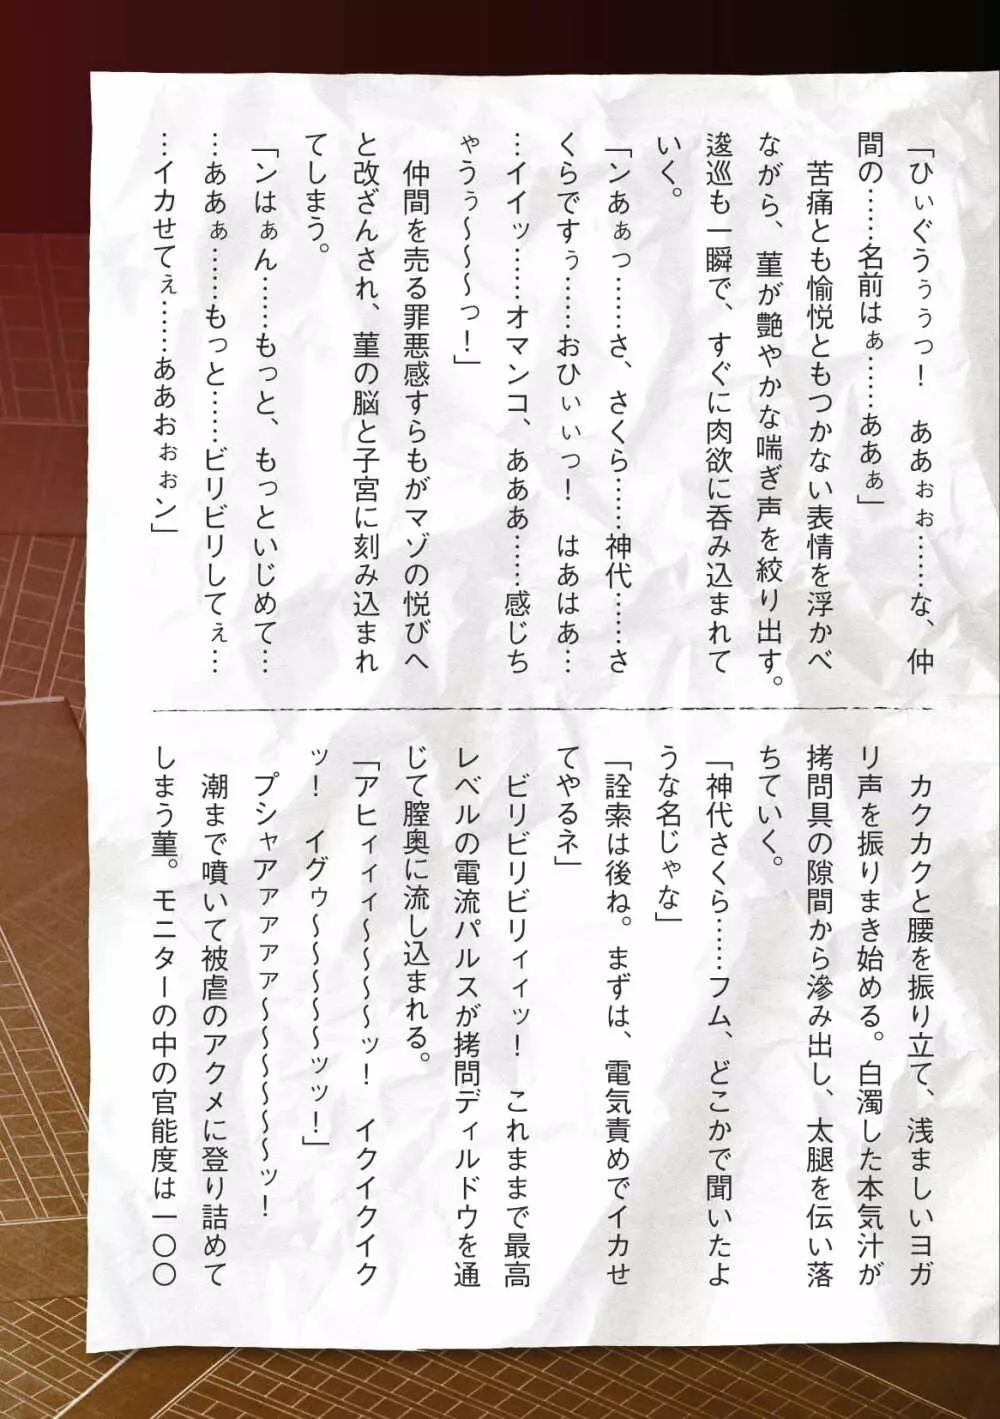 「ひぃぐうぅぅっ！　ああぉぉ……な、仲
間の……名前はぁ……ああぁ」
苦痛とも愉悦ともつかない表情を浮かべ
ながら、菫が艶やかな喘ぎ声を絞り出す。
逡巡も一瞬で、すぐに肉欲に呑み込まれて
いく。
「ンあぁっ……さ、さくら……神代……さ
くらですぅ……おひぃぃっ！　はあはあ…
…イイッ……オマンコ、あああ……感じち
ゃうぅ～～～っ！」
仲間を売る罪悪感すらもがマゾの悦びへ
と改ざんされ、菫の脳と子宮に刻み込まれ
てしまう。
「ンはぁん……もっと、もっといじめて…
…ああぁ……もっと……ビリビリしてぇ…
…イカせてぇ……ああおぉぉン」
カクカクと腰を振り立て、浅ましいヨガ
リ声を振りまき始める。白濁した本気汁が
拷問具の隙間から滲み出し、太腿を伝い落
ちていく。
「神代さくら……フム、どこかで聞いたよ
うな名じゃな」
「詮索は後ね。まずは、電気責めでイカせ
てやるネ」
ビリビリビリィィッ！　これままで最高
レベルの電流パルスが拷問ディルドウを通
じて膣奥に流し込まれる。
「アヒィィィ～～～～ッ！　イクイクイク
ッ！　イグゥ～～～～～～ッッ！」
プシャアァァァァ～～～～～～～ッ！
潮まで噴いて被虐のアクメに登り詰めて
しまう菫。モニターの中の官能度は一〇〇